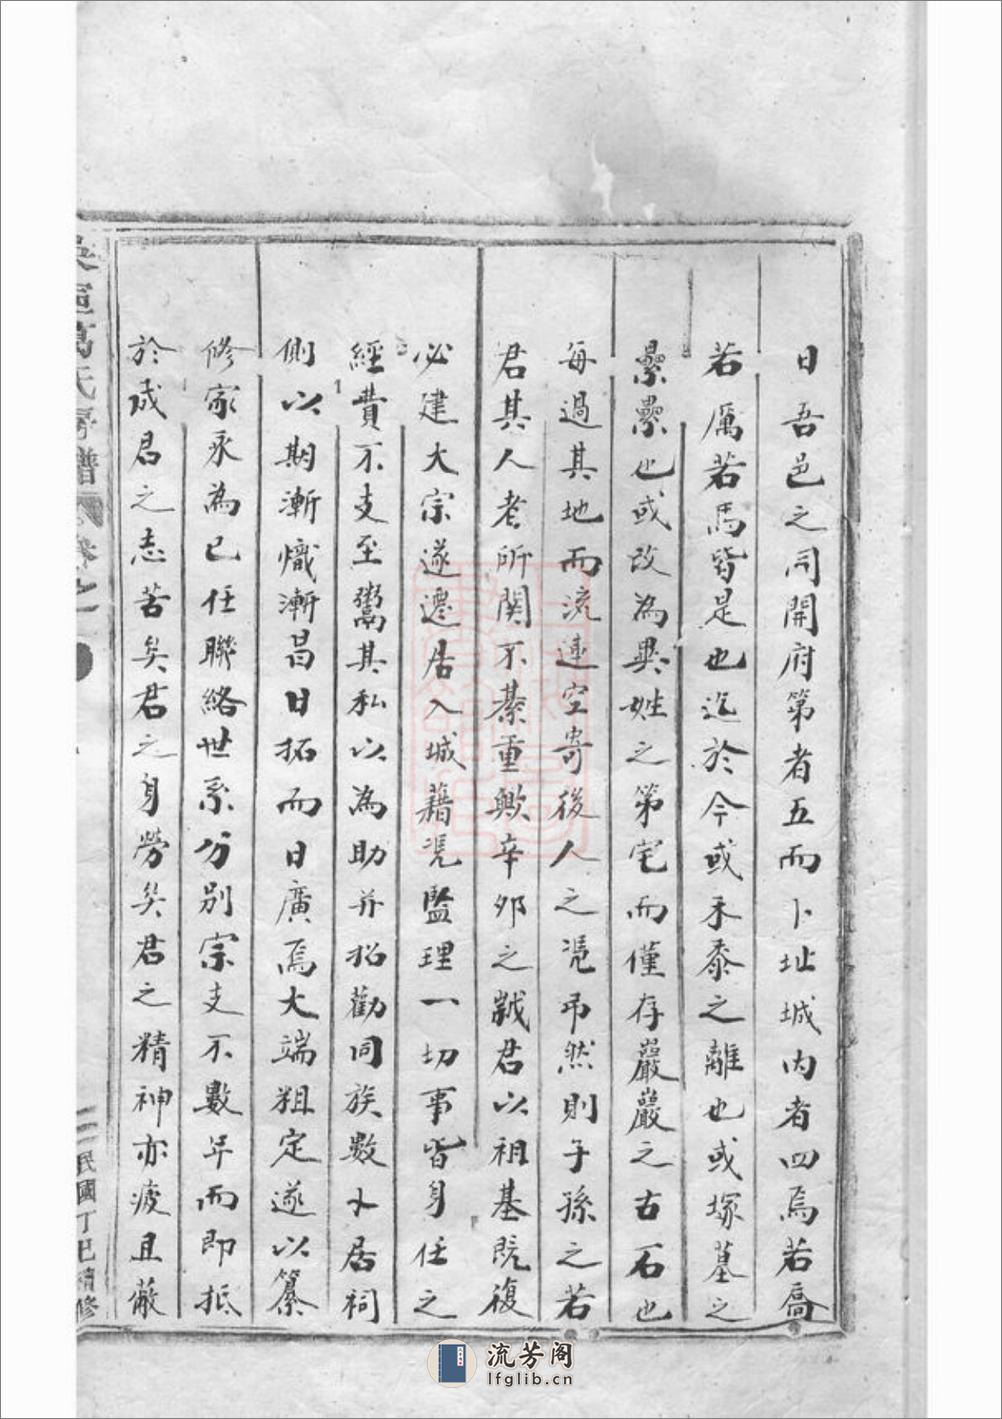 日吾邑之同開府第者五而卜址城内者四焉若喬
若厲若馬皆是也迄於今或禾黍之離也或塚墓之
纍纍也或改為異姓之第宅而僅存巖巖之古石也
每過其地而流連空寄後人之憑弔然則子孫之若
君其人者所関不綦重歟辛卯之歲君以祖基既復
必建大宗遂遷居入城藉凭監理一切事皆身任之
經費不支至鬻其私以為助并招勸同族數人居祠
側以期漸熾漸昌日拓而日廣焉大端粗定遂以纂
修家乘為己任聯絡世系分别宗支不數年而即抵
於成君之志苦矣君之身勞矣君之精神亦疲且蔽
邑萬氏房譜 卷之一
民國丁巳續修
流芳阁
lfglib.cn